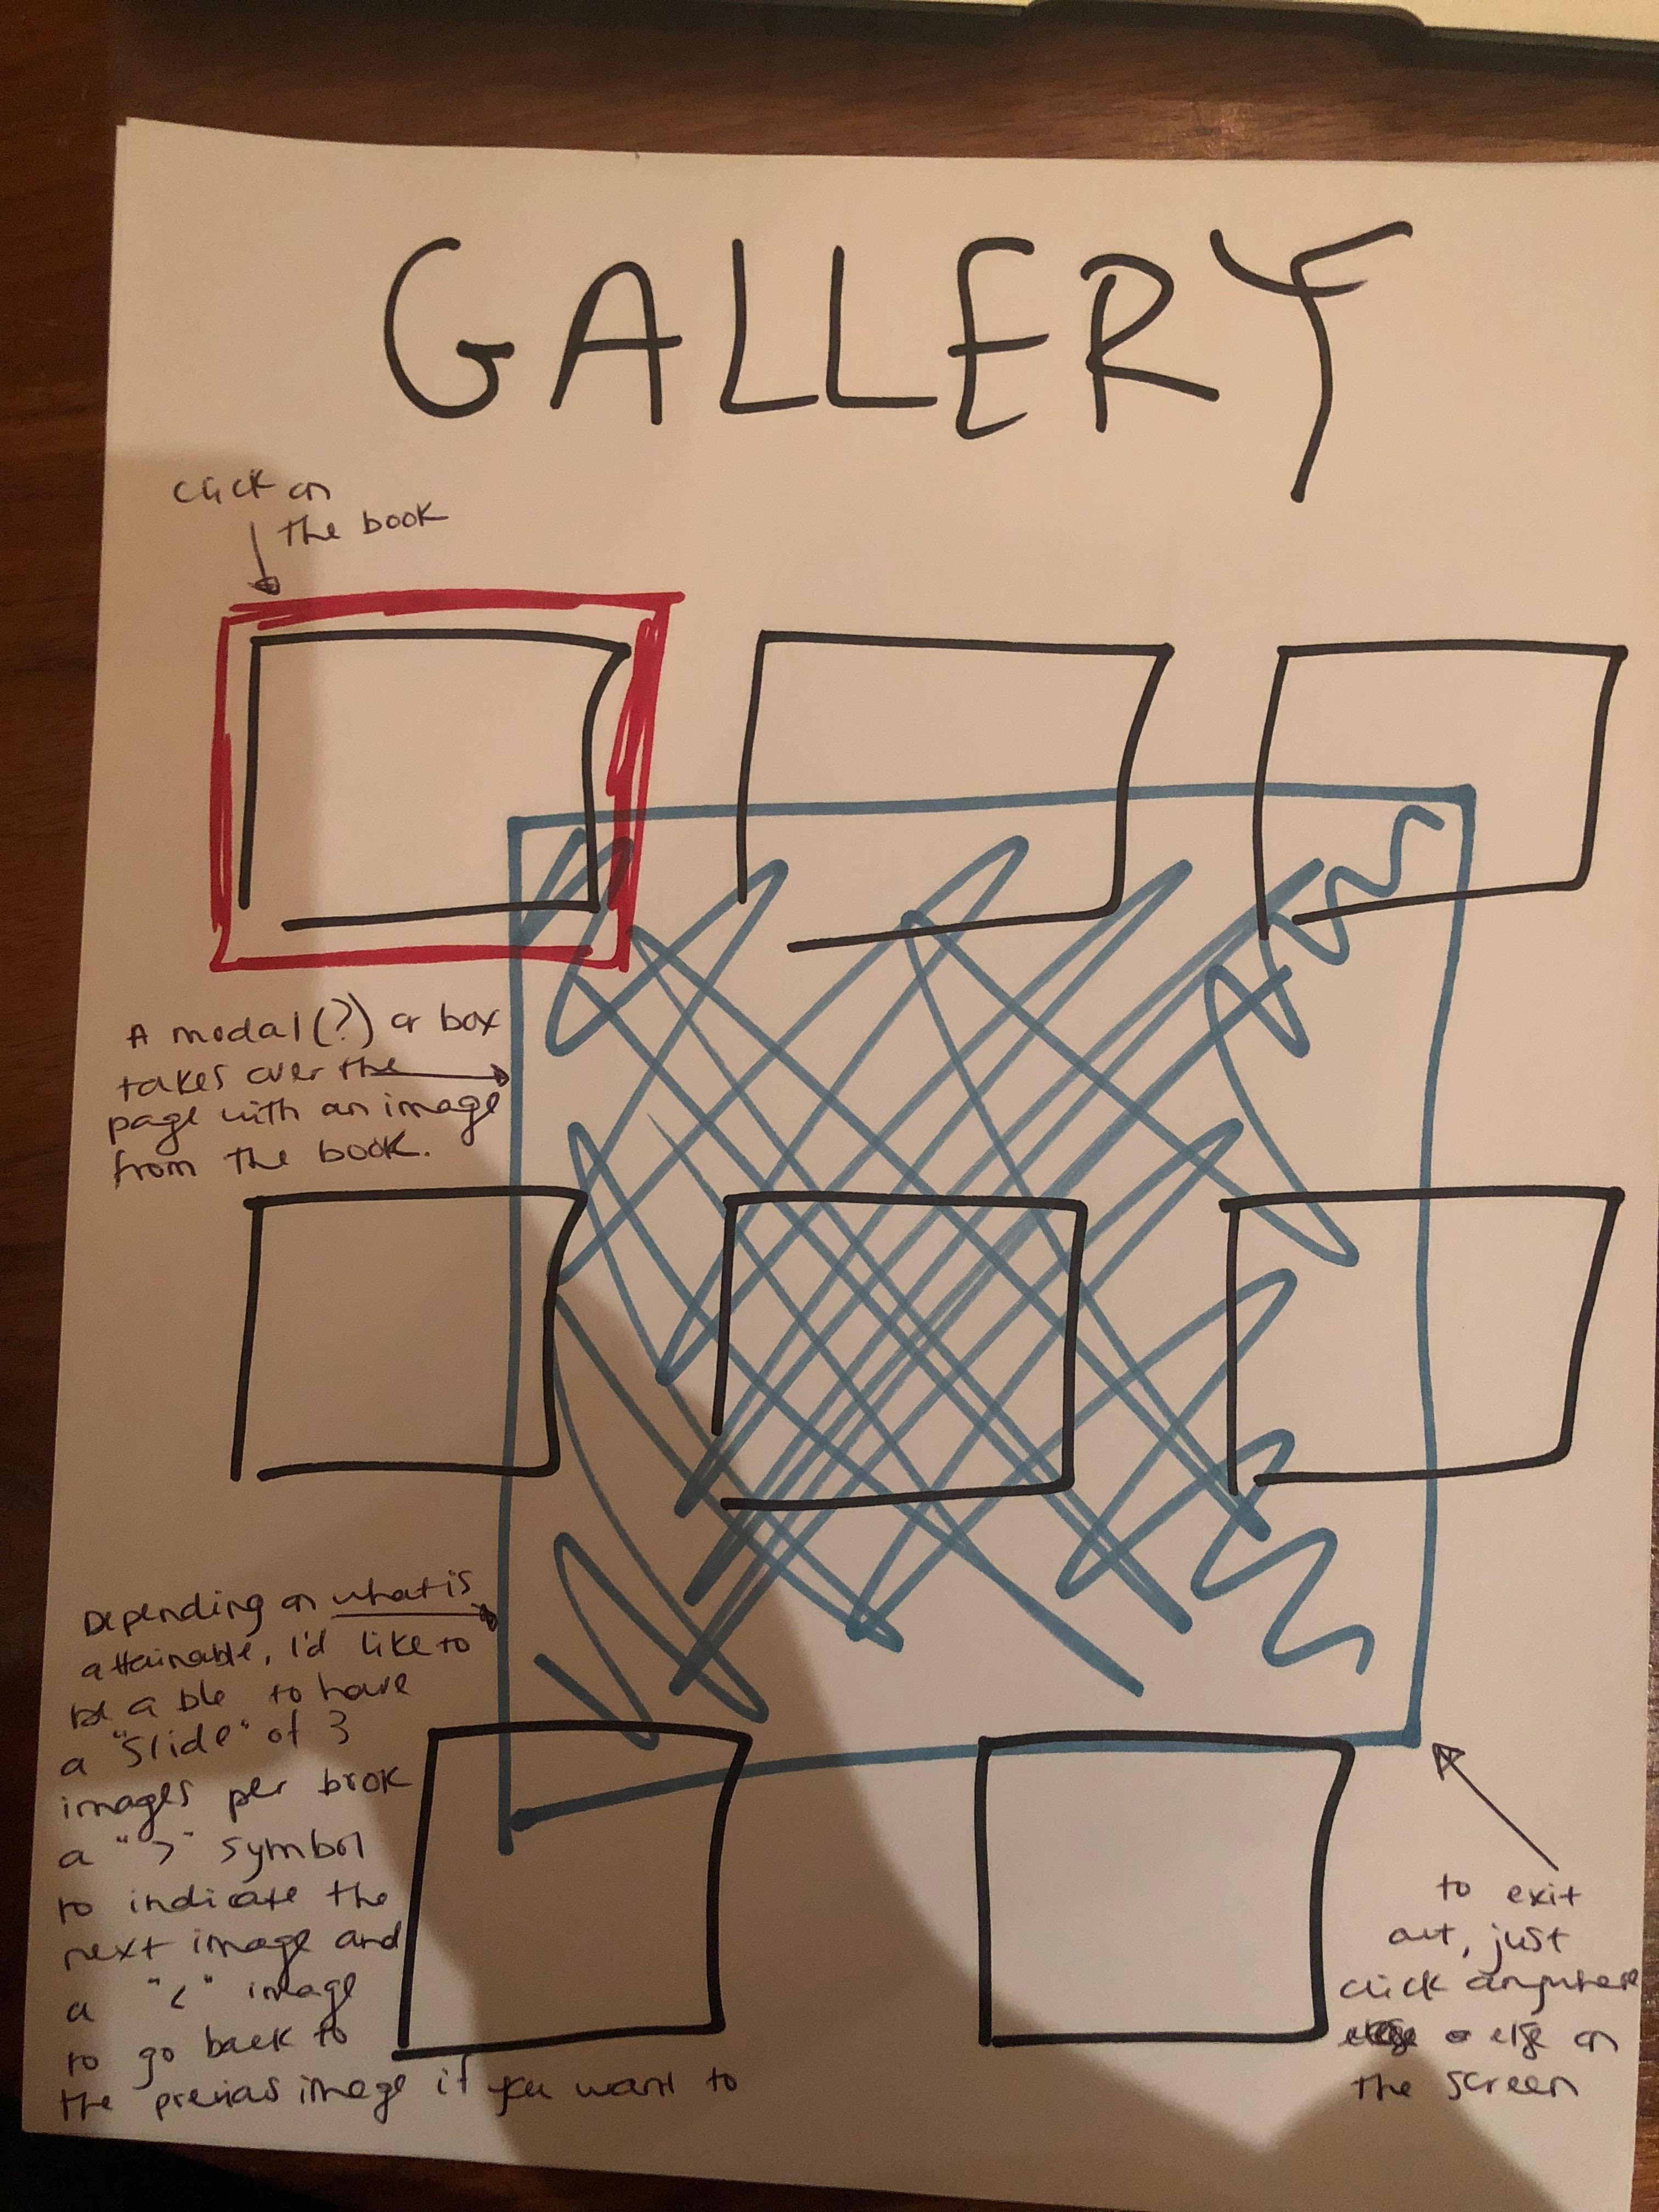 GALLERY
click on
the book
A modal (?) or box
takes over the
page with an image
from the book.
Depending on what is
attainable, I'd like to
be able to have
a "slide" of 3
images per book
a ">" symbol
to indicate the
next image and
a "<" image
to go back to
the previous image if you want to
to exit
out, just
click anywhere
else on
the screen